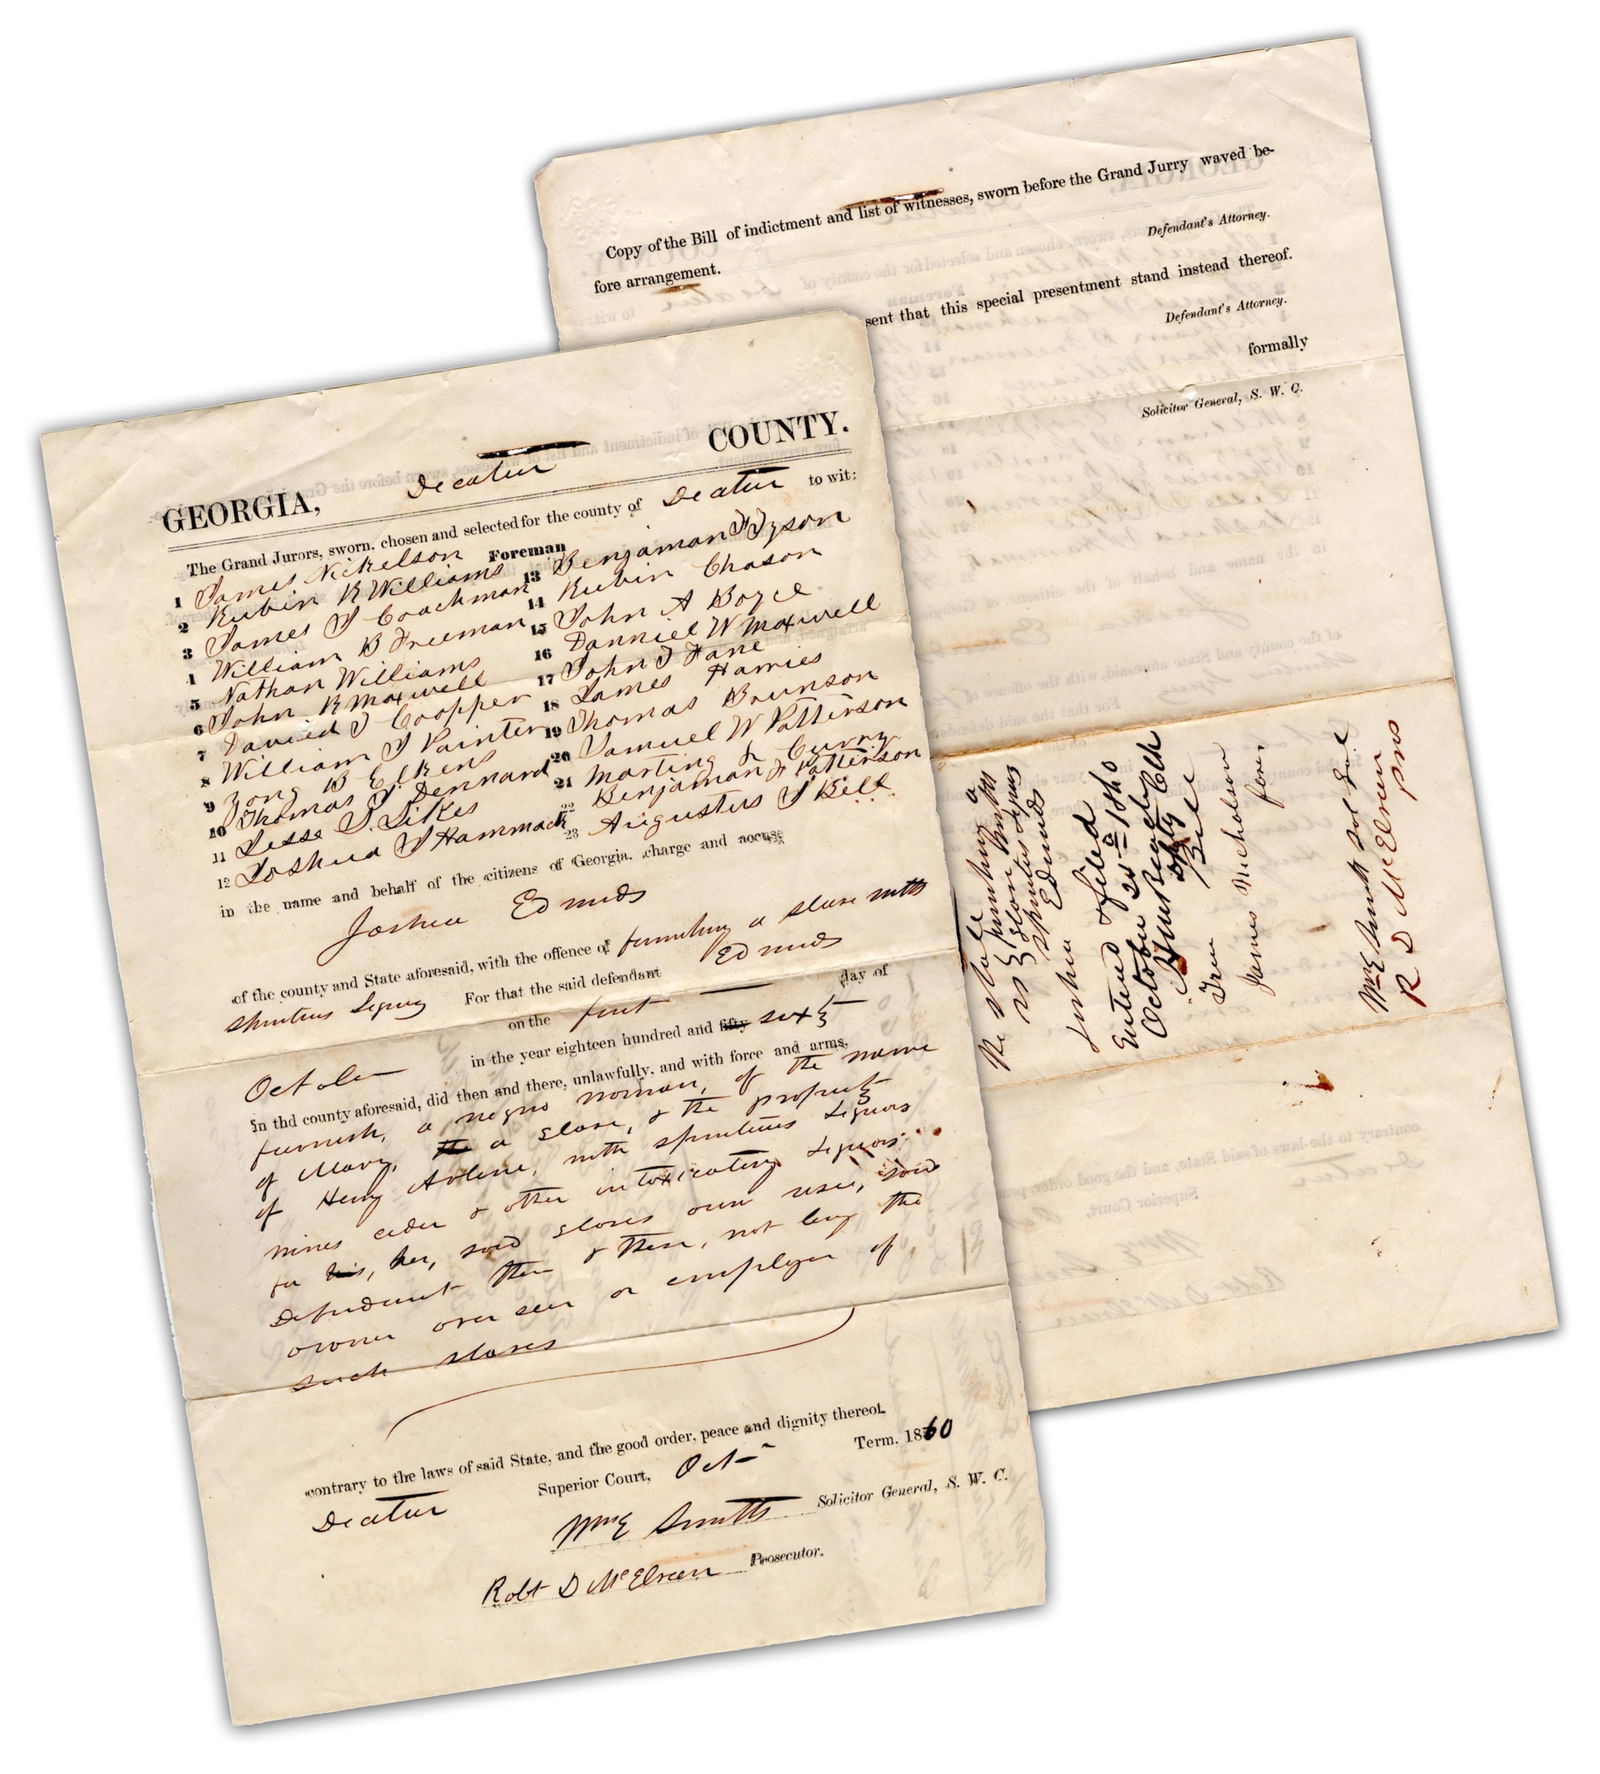 GEORGIA, Decatur COUNTY.
The Grand Jurors, sworn. chosen and selected for the county of Decatur to wit:
1 James Nickelson Foreman
2 Rubin R Williams
3 James J Coachman
4 William B Freeman
5 Nathan Williams
6 John R Maxwell
7 David J Coopper
8 William J Painter
9 B Elkens
10 Thomas J Dennard
11 Jesse J. Sikes
12 Joshua J Hammack
13 Benjaman F Tyson
14 Rubin Chason
15 John A Boyce
16 Danniel W Maxwell
17 John J Fane
18 James Harries
19 Thomas Brunson
20 Samuel W Patterson
21 Marting Curry
22 Benjaman F Patterson
23 Augustus J Bell
in the name and behalf of the citizens of Georgia. charge and accuse
Joshua Edmuds
of the county and State aforesaid, with the offence of furnishing a slave with
For that the said defendant Edmuds
on the first day of
October in the year eighteen hundred and fifty sixty
in thd county aforesaid, did then and there, unlawfully. and with force and arms.
furnish, a negro woman, of the name
of Mary, the a slave, & the property
of Henry with Liquors
wines cider & other intoxicating Liquors
for his, her, said slaves own use, said
Defendant then & there, not being the
owner over seer or employer of
such slaves
contrary to the laws of said State, and the good order, peace and dignity thereof.
Decatur Superior Court, Oct Term. 1860
Wm E Smith Solicitor General, S. W. C.
Robt D McElveen Prosecutor.
Copy of the Bill of indictment and list of witnesses, sworn before the Grand Jurry waved be-
fore arrangement.
Defendant's Attorney.
sent that this special presentment stand instead thereof.
Defendant's Attorney.
formally
Solicitor General, S. W. C.
The State
vs
furnishing a
slave
Joshua Edmuds
Entered & filed
October 25 1860
True Bill
James Nicholson
fore.
Wm E Smith Sol Genl
R D McElveen pros